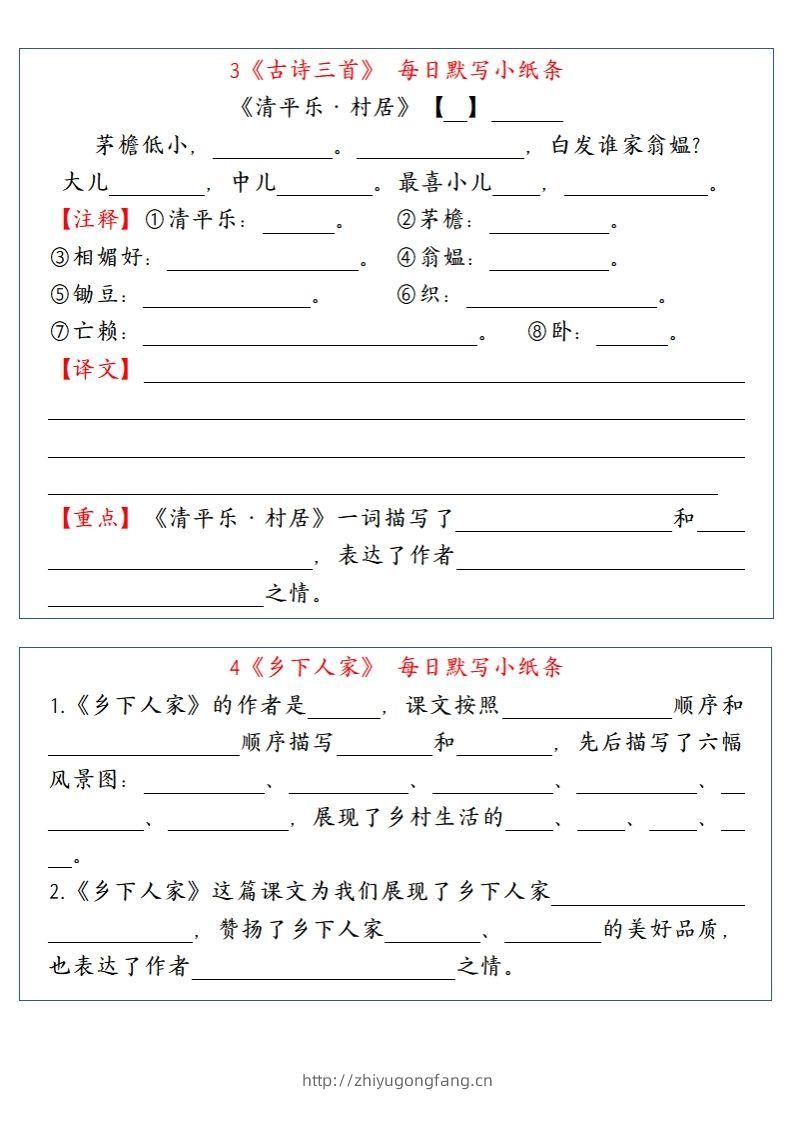 3《古诗三首》 每日默写小纸条
《清平乐·村居》【__】______
茅檐低小，__________。______________，白发谁家翁媪?
大儿________，中儿________。最喜小儿____，____________。
【注释】①清平乐：______。 ②茅檐：__________。
③相媚好：________________。 ④翁媪：__________。
⑤锄豆：______________。 ⑥织：________________。
⑦亡赖：____________________________。 ⑧卧：______。
【译文】__________________________________________________
__________________________________________________________
__________________________________________________________
________________________________________________________
【重点】《清平乐·村居》一词描写了__________________和____
______________________，表达了作者________________________
__________________之情。
4《乡下人家》 每日默写小纸条
1.《乡下人家》的作者是______，课文按照______________顺序和
________________顺序描写________和________，先后描写了六幅
风景图：__________、__________、__________、__________、__
________、__________，展现了乡村生活的____、____、____、__
__。
2.《乡下人家》这篇课文为我们展现了乡下人家________________
____________，赞扬了乡下人家________、________的美好品质，
也表达了作者______________________之情。
http://zhiyugongfang.cn